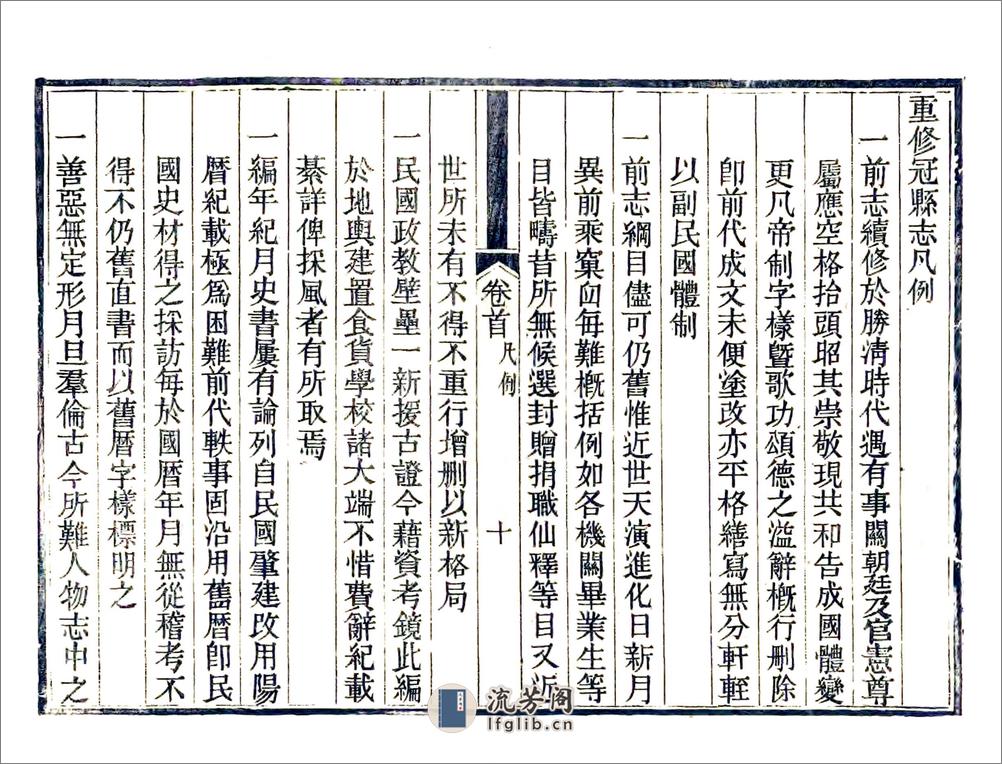 重修冠縣志凡例
一前志續修於勝清時代遇有事關朝廷及官憲尊
屬應空格抬頭昭其崇敬現共和告成國體變
更凡帝制字樣曁歌功頌德之溢辭槪行删除
卽前代成文未便塗改亦平格繕寫無分軒輊
以副民國體制
一前志綱目儘可仍舊惟近世天演進化日新月
異前乘窠臼每難槪括例如各機關畢業生等
目皆疇昔所無候選封贈捐職仙釋等目又近
卷首 凡例 十
世所未有不得不重行增删以新格局
一民國政教壁壘一新援古證今藉資考鏡此編
於地輿建置食貨學校諸大端不惜費辭紀載
綦詳俾採風者有所取焉
一編年紀月史書屢有論列自民國肇建改用陽
曆紀載極爲困難前代軼事固沿用舊曆卽民
國史材得之採訪每於國曆年月無從稽考不
得不仍舊直書而以舊曆字樣標明之
一善惡無定形月旦羣倫古今所難人物志中之
流芳阁
lfglib.cn